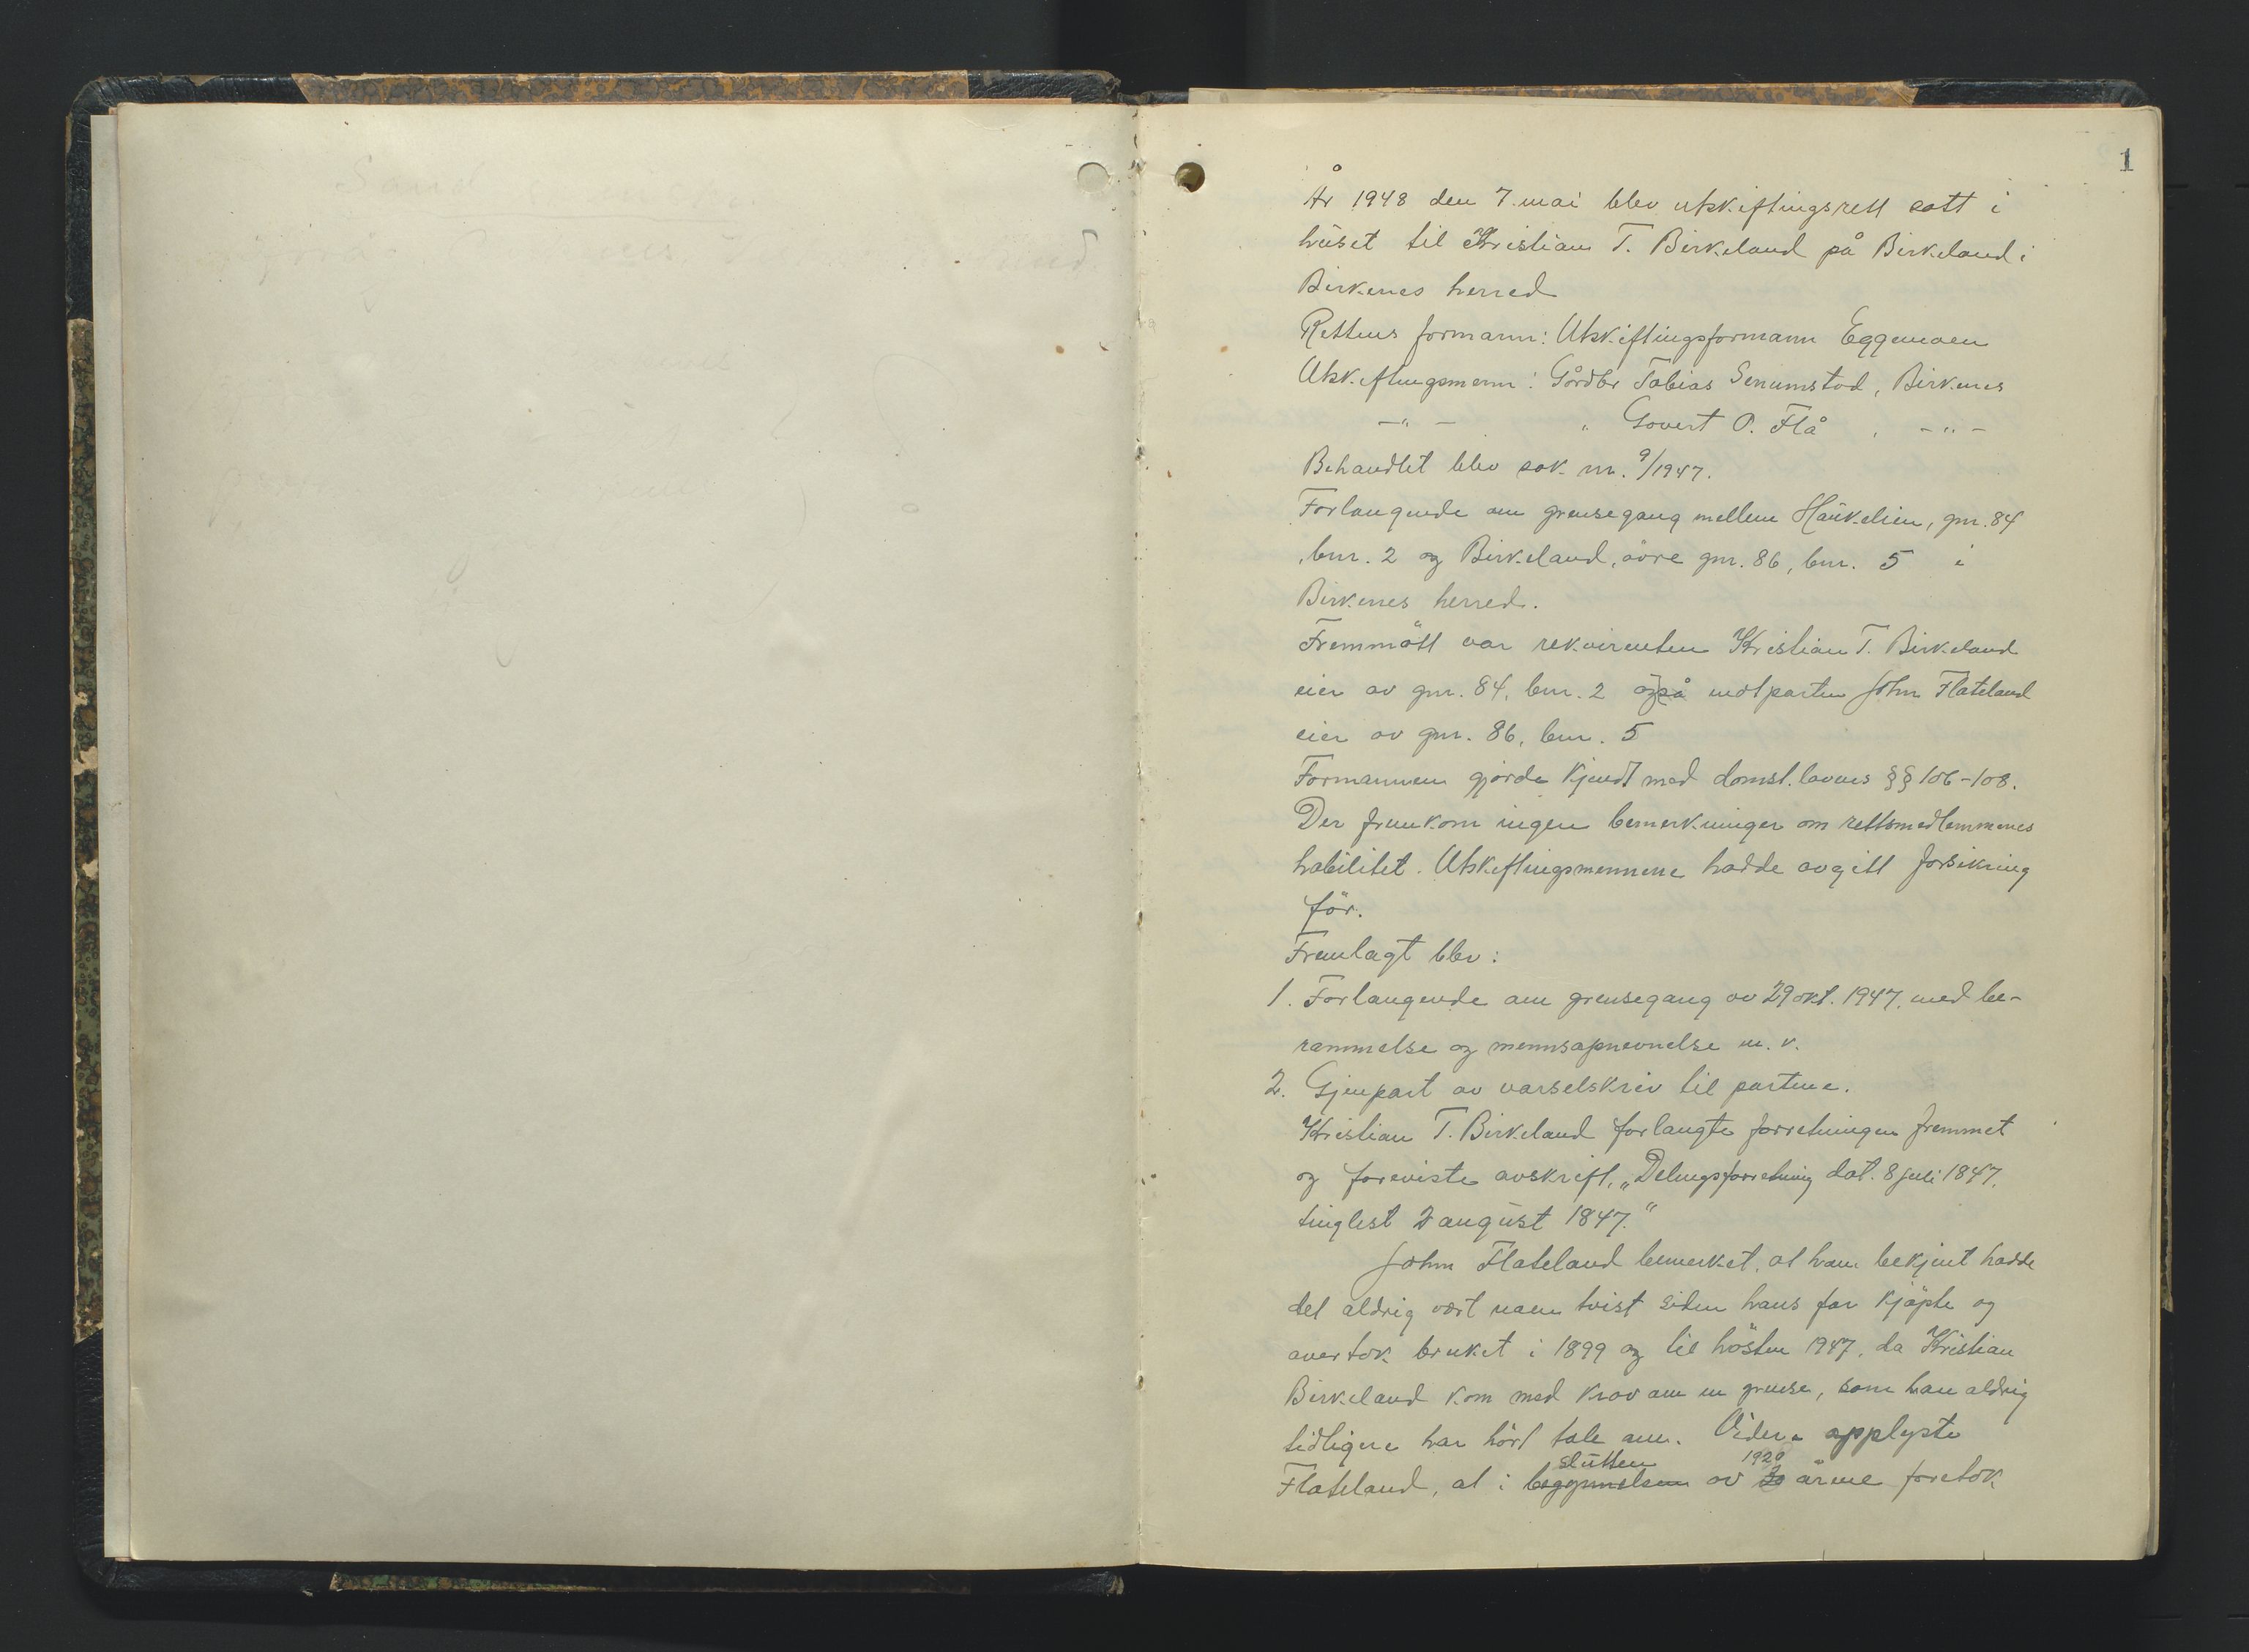 1
År 1948 den 7. mai blev utskiftingsrett satt i
huset til Kristian T. Birkeland på Birkeland i
Birkenes herred
Rettens formann: Utskiftingsformann Eggemoen
Utskiftingsmenn: Gårdbr Tobias Senumstad, Birkenes
—"— " Govert O. Flå , -"-
Behandlet blev sak nr. 9/1947.
Forlangende om grensegang mellem Haukelien, gnr. 84
, bnr. 2 og Birkeland, övre gnr. 86, bnr. 5 i
Birkenes herred.
Fremmött var rekvirenten Kristian T. Birkeland
eier av gnr. 84, bnr. 2 også motparten John Flateland
eier av gnr. 86, bnr. 5
Formannen gjorde kjendt med domst.lovens §§ 106-108.
Der fremkom ingen bemerkninger om rettsmedlemmenes
habilitet. Utskiftingsmennene hadde avgitt forsikring
för.
Fremlagt blev:
1. Forlangende om grensegang av 29 okt. 1947, med be-
rammelse og mennsopnevnelse m. v.
2. Gjenpart av varselskriv til partene.
Kristian T. Birkeland forlangte forretningen fremmet
og foreviste avskrift, „Delingsforretning dat. 8 juli 1847,
tinglest 2 august 1847."
John Flateland bemerket, at ham bekjent hadde
det aldrig vært noen tvist siden hans far kjöpte og
overtok bruket i 1899 og til hösten 1947, da Kristian
Birkeland kom med krav om en grense, som han aldrig
tidligere har hört tale om. Videre opplyste
slutten 1920
Flateland, at i begynnelsen av 20 årene foretok